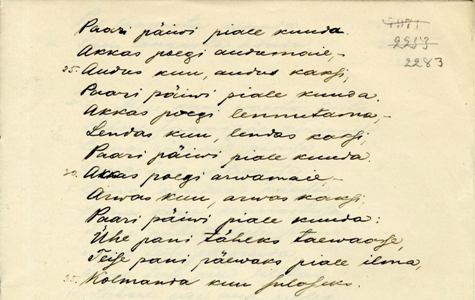 Paari päiwi piale kuuda.
Akkas poegi audumaie,-
25. Audus kuu, audus kaksi,
Paari päiwi piale kuuda.
Akkas poegi lennutama,-
Lendas kuu, lendas kaksi,
Paari päiwi piale kuuda.
30. Akkas poegi arwamaie,-
Arwas kuu, arwas kaksi,
Paari päiwi piale kuuda:
Ühe pani täheks taewaasse,
Teise pani päewaks piale ilma,
35. Kolmanda kuu
2283